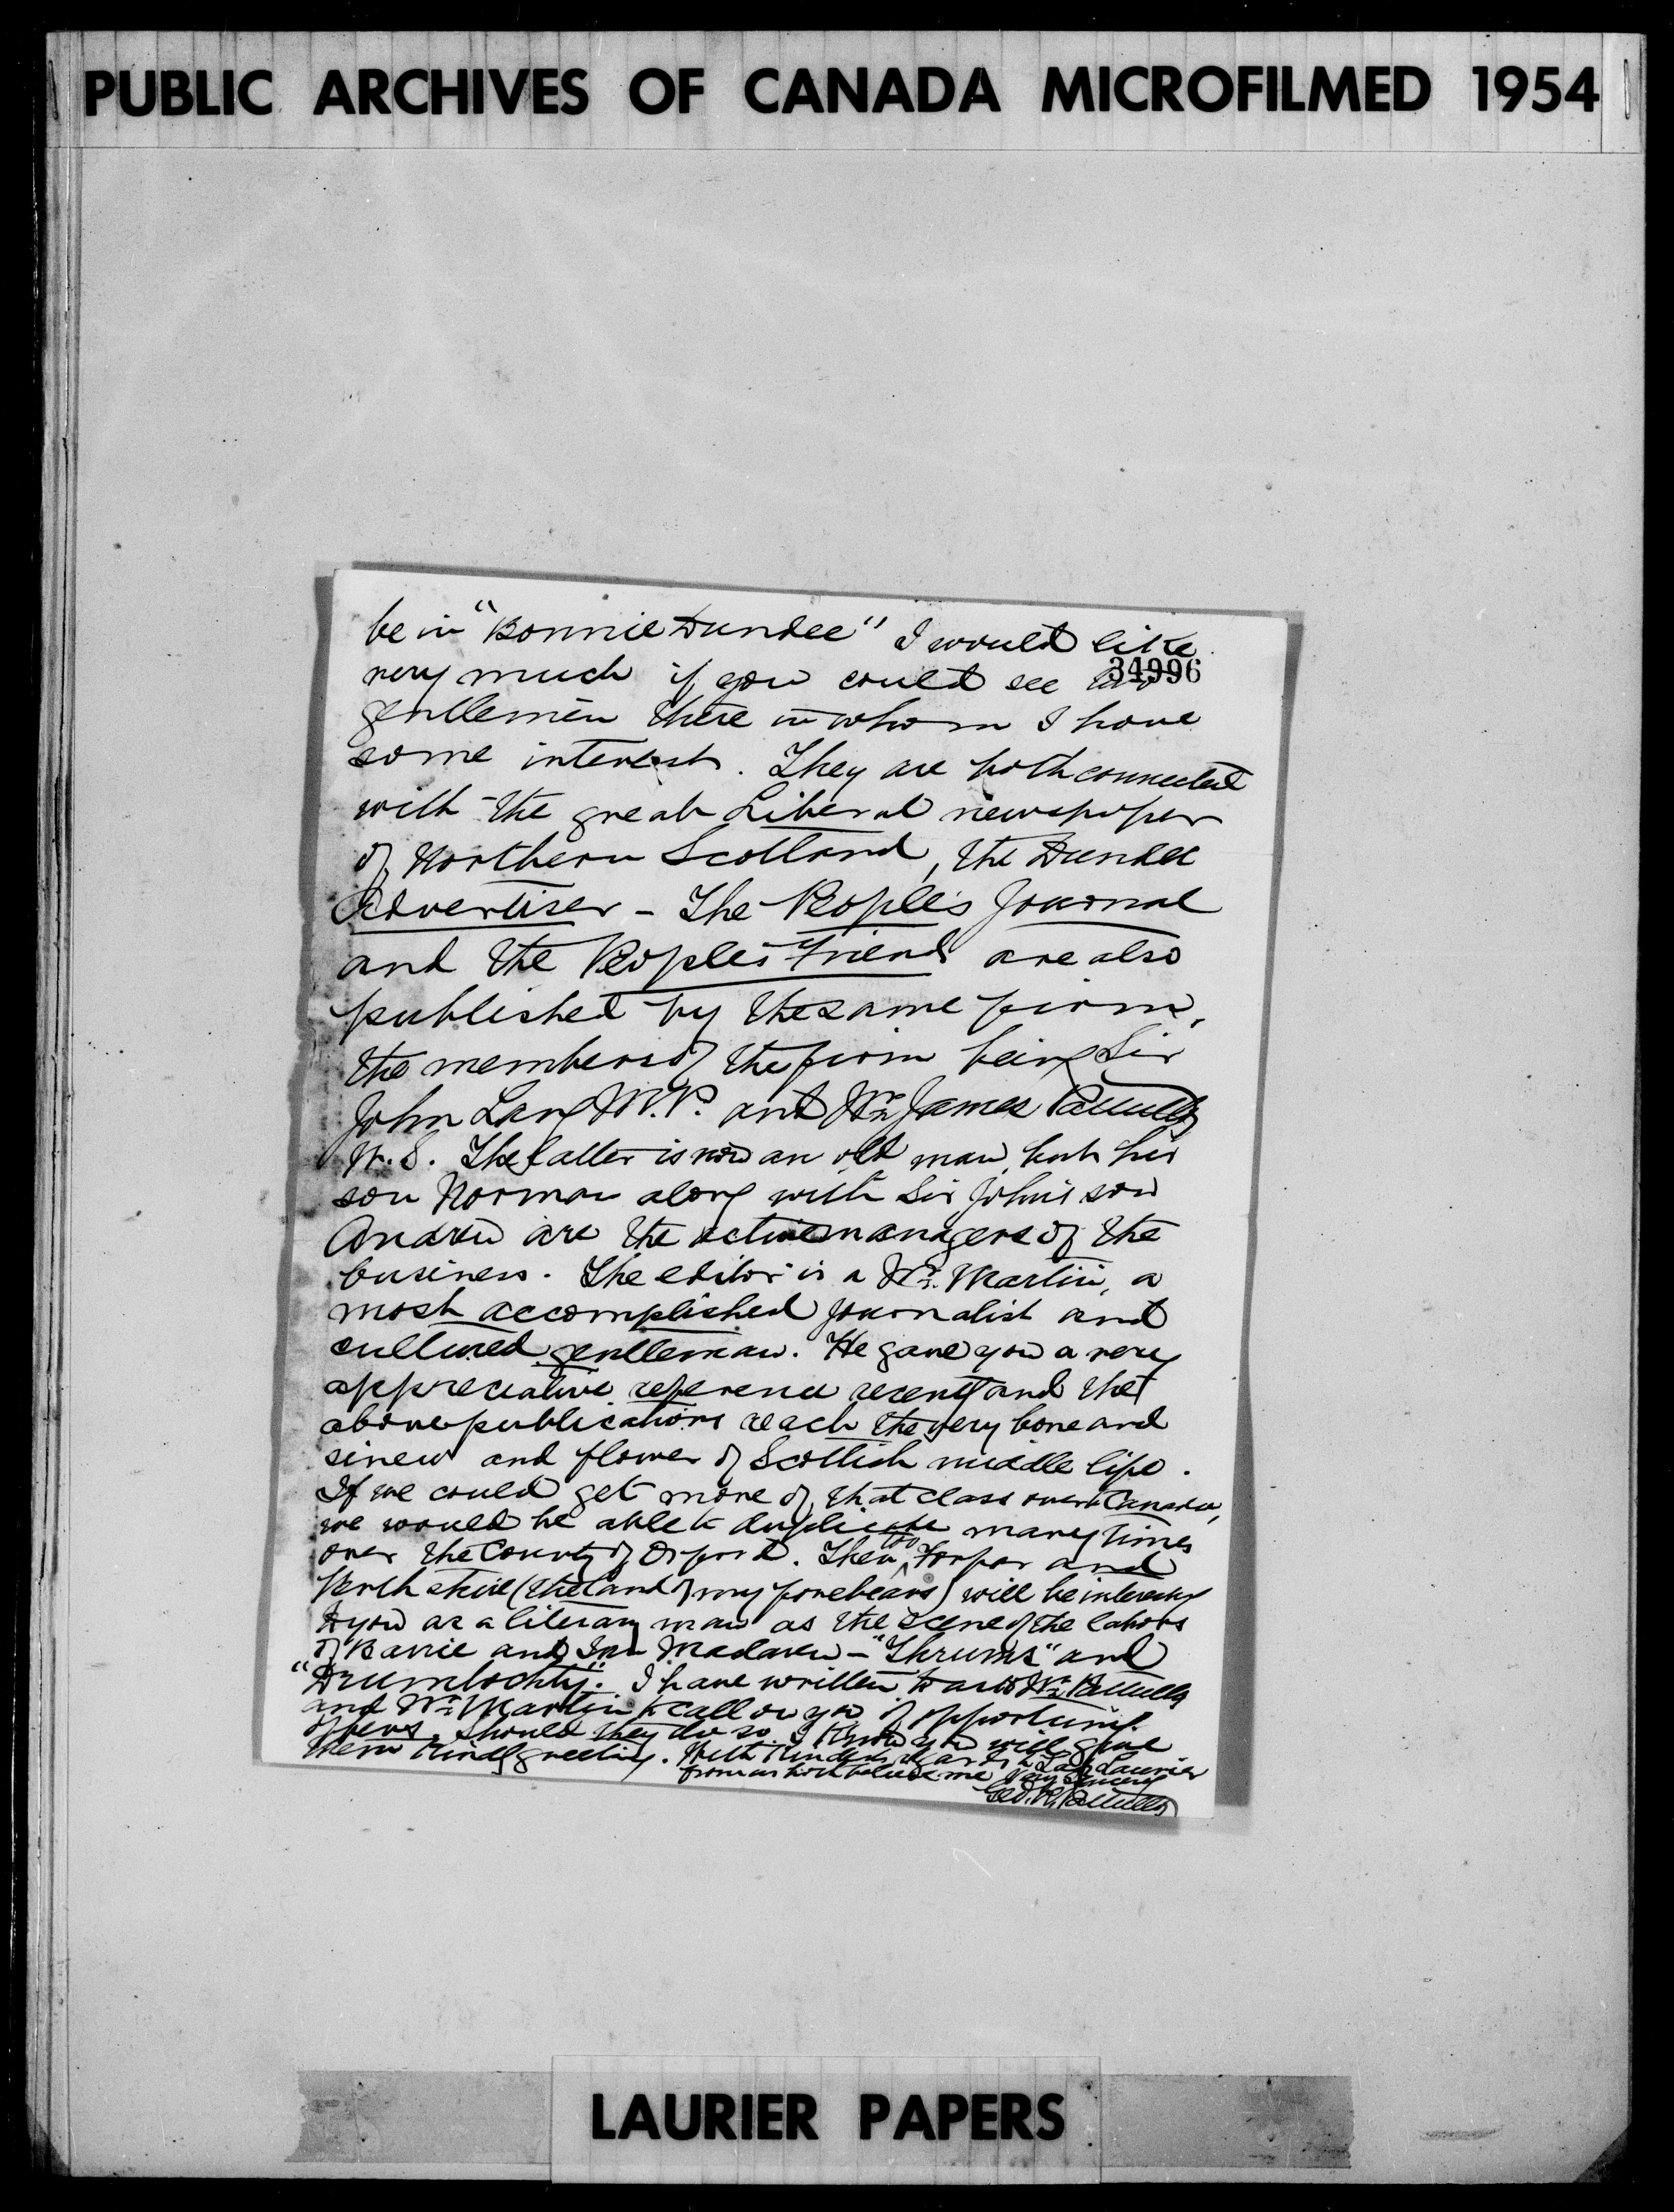 PUBLIC ARCHIVES OF CANADA MICROFILMED 1954
be in "Bonnie Dundee" I would like
34996
very much if you could see two
gentlemen there in whom I have
some interest. They are both connected
with the great Liberal newspaper
of Northern Scotland, the Dundee
Advertiser - The People's Journal
and the People's Friend are also
published by the same firm,
the members of the firm being Sir
John Leng M.P. and Mr. James Pattullo
W.S. The latter is now an old man, but his
son Norman along with Sir John's son
Andrew are the active managers of the
business. The editor is a Mr. Martin, a
most accomplished journalist and
cultured gentleman. He gave you a very
appreciative reference recently and the
above publications reach the very bone and
sinew and flower of Scottish middle life.
If we could get more of that class over to Canada,
we would be able to duplicate many times
over the County of Oxford. Then too Forfar and
Perthshire (the land of my forebears) will be interesting
to you as a literary man as the scene of the labors
of Barrie and Ian Maclaren - "Thrums" and
"Drumtochty". I have written to ask Mr. Pattullo
and Mr. Martin to call on you if opportunity
offers. Should they do so I know you will give
them kindly greeting. With kindest regards to Lady Laurier
from us both believe me Very Sincerely
Geo. R. Pattullo
LAURIER PAPERS